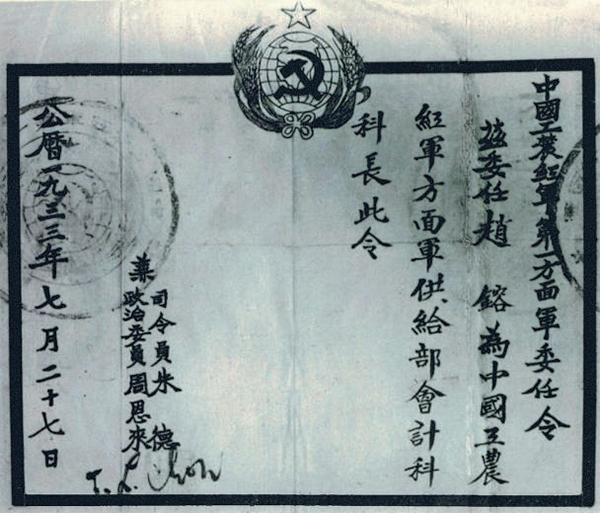 中國工農紅軍第一方面軍委任令
茲委任趙 鎔為中國工農
紅軍方面軍供給部會計科
科長此令
司令員朱 德
兼政治委員周恩來
公曆一九三三年七月二十七日